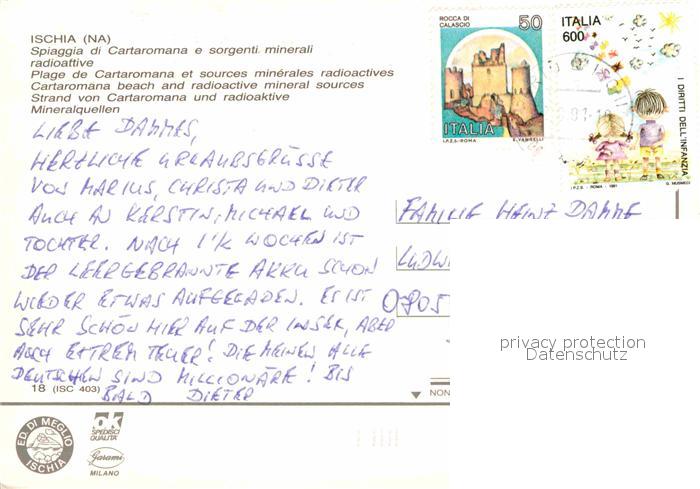 ISCHIA (NA)
Spiaggia di Cartaromana e sorgenti minerali
radioattive
Plage de Cartaromana et sources minérales radioactives
Cartaromana beach and radioactive mineral sources
Strand von Cartaromana und radioaktive
Mineralquellen
LIEBE DAMMES,
HERZLICHE URLAUBSGRÜSSE
VON MARIUS, CHRISTA UND DIETER
AUCH AN KERSTIN, MICHAEL UND
TOCHTER. NACH 1½ WOCHEN IST
DER LEERGEBRANNTE AKKU SCHON
WIEDER ETWAS AUFGELADEN. ES IST
SEHR SCHÖN HIER AUF DER INSEL, ABER
AUCH EXTREM TEUER! DIE MEINEN ALLE
DEUTSCHEN SIND MILLIONÄRE! BIS
BALD DIETER
18 (ISC 403)
ED. DI MEGLIO
ISCHIA
OK
SPEDISCI
QUALITA'
Garami
MILANO
NON
ROCCA DI
CALASCIO
50
ITALIA
I.P.Z.S. - ROMA E. VANGELLI
ITALIA
600
I DIRITTI DELL'INFANZIA
I.P.Z.S. - ROMA - 1991
FAMILIE HEINZ DAMME
LUDWI
O-805
privacy protection
Datenschutz